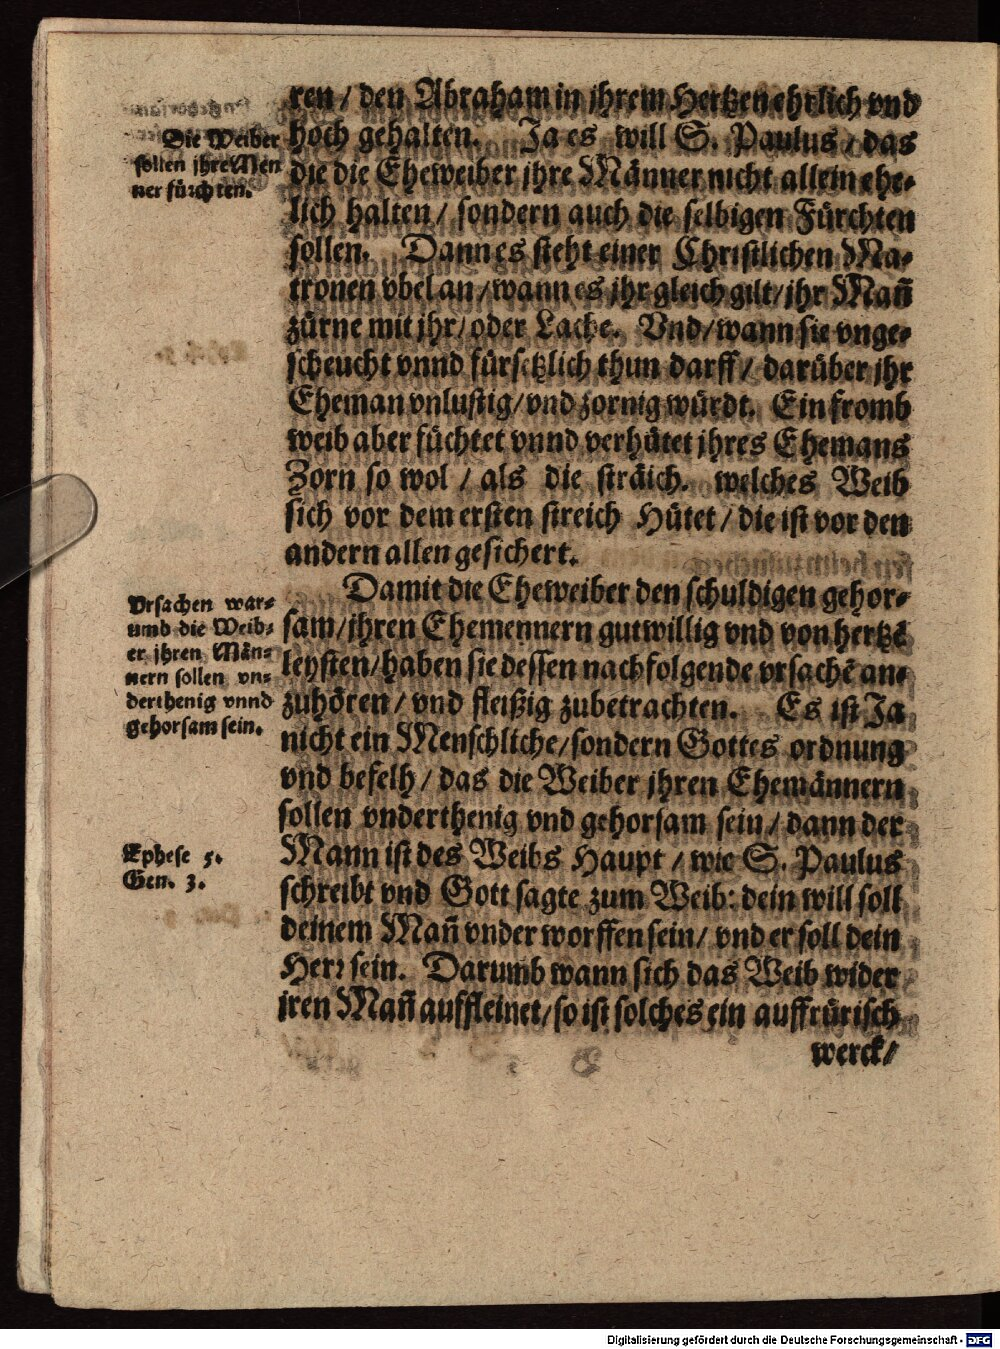 ren / den Abraham in jhrem Hertzen ehrlich vnd
hoch gehalten. Ja es will S. Paulus / das
die die Eheweiber jhre Männer nicht allein ehr-
lich halten / sondern auch die selbigen Fürchten
sollen. Dann es steht einer Christlichen Ma-
tronen vbel an / wann es jhr gleich gilt / jhr Mañ
zürne mit jhr / oder Lache. Vnd / wann sie vnge-
scheucht vnnd fürsetzlich thun darff / darüber jhr
Eheman vnlustig / vnd zornig würdt. Ein fromb
weib aber füchtet vnnd verhütet jhres Ehemans
Zorn so wol / als die sträich. welches Weib
sich vor dem ersten streich Hütet / die ist vor den
andern allen gesichert.
Die Weiber
sollen jhre Men
ner fürchten.
Damit die Eheweiber den schuldigen gehor-
sam / jhren Ehemennern gutwillig vnd von hertzẽ
leysten / haben sie dessen nachfolgende vrsachẽ an-
zuhören / vnd fleißig zubetrachten. Es ist Ja
nicht ein Menschliche / sondern Gottes ordnung
vnd befelh / das die Weiber jhren Ehemännern
sollen vnderthenig vnd gehorsam sein / dann der
Mann ist des Weibs Haupt / wie S. Paulus
schreibt vnd Gott sagte zum Weib: dein will soll
deinem Mañ vnder worffen sein / vnd er soll dein
Herr sein. Darumb wann sich das Weib wider
jren Mañ auffleinet / so ist solches ein auffrürisch
werck /
Vrsachen war-
umb die Weib-
er jhren Män-
nern sollen vn-
derthenig vnnd
gehorsam sein.
Ephese 5.
Gen. 3.
Digitalisierung gefördert durch die Deutsche Forschungsgemeinschaft - DFG